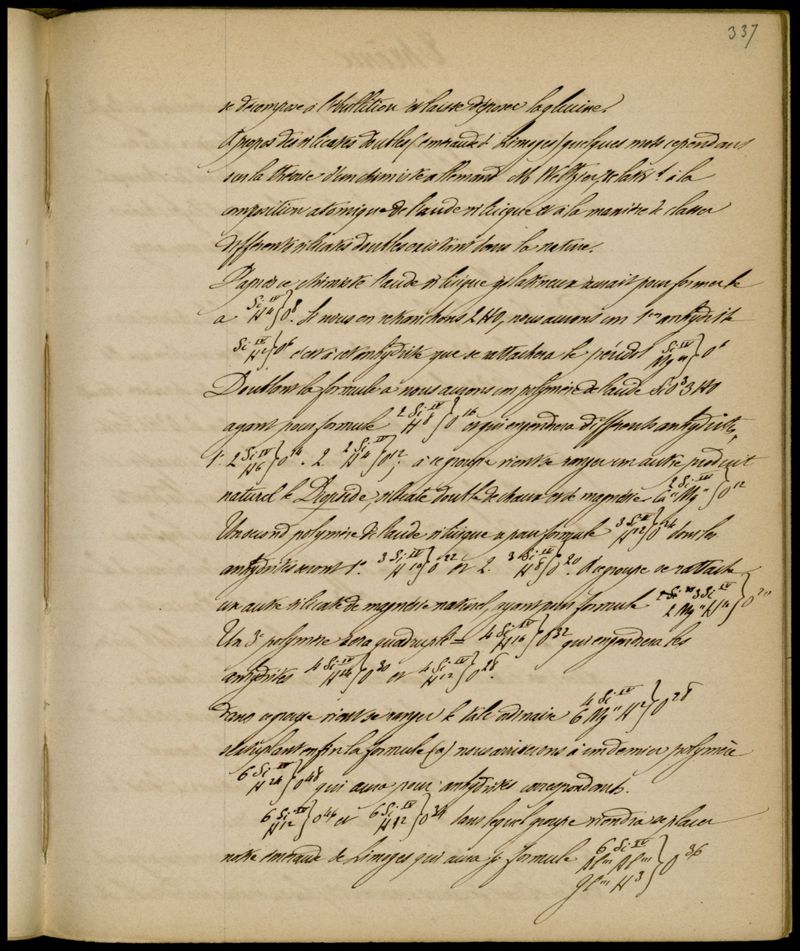 337
se décompose à l'ébullition et laisse déposer la glucine.
A propos des silicates doubles (émeraude de Limoges) quelques mots cependant
sur la théorie d'un chimiste allemand M relativt à la
composition atomique de l'acide silicique et à la manière de classer
différents silicates doubles existant dans la nature.
D'après ce chimiste l'acide silicique gélatineux aurait pour formule
a Si IV H4 } O8. Si nous en retranchons 2 HO, nous aurons un 1er anhydride
Si IV H2 } O6 c'est à cet anhydride que se rattachera le péridot Si IV Mg'' } O6
Doublons la formule a nous aurons un polymère de l'acide
ayant pour formule 2 Si IV H8 } O16 et qui engendrera différents anhydrides,
1° 2 Si IV H6 } O14 . 2 2 Si IV H4 } O12, à ce groupe vient se ranger un autre produit
naturel le Diopside, silicate double de chaux et de magnésie 2 Si IV Ca'' Mg'' } O12
Un second polymère de l'acide silicique a pour formule 3 Si IV H12 } O24 dont les
anhydrides seront 1° 3 Si IV H10 } O22 et 2. 3 Si IV H8 } O20. A ce groupe se rattache
un autre silicate de magnésie naturel, ayant pour formule 3 Si IV 2 Mg'' } O
Un 3e polymère sera quadruple = 4 Si IV H16 } O32 qui engendrera les
anhydrides 4 Si IV H14 } O30 et 4 Si IV H12 } O28.
Dans ce groupe vient se ranger le talc ordinaire 4 Si IV 6 Mg'' H4 } O28
Multipliant enfin la formule (a) nous arriverons à un dernier polymère
6 Si IV H24 } O48 qui aura pour anhydrides correspondants.
6 Si IV H12 } O46 et 6 Si IV H12 } O34 dans lequel groupe viendra se placer
notre émeraude de Limoges qui aura pr formule 6 Si IV Al''' Al''' Gl''' H3 } O36